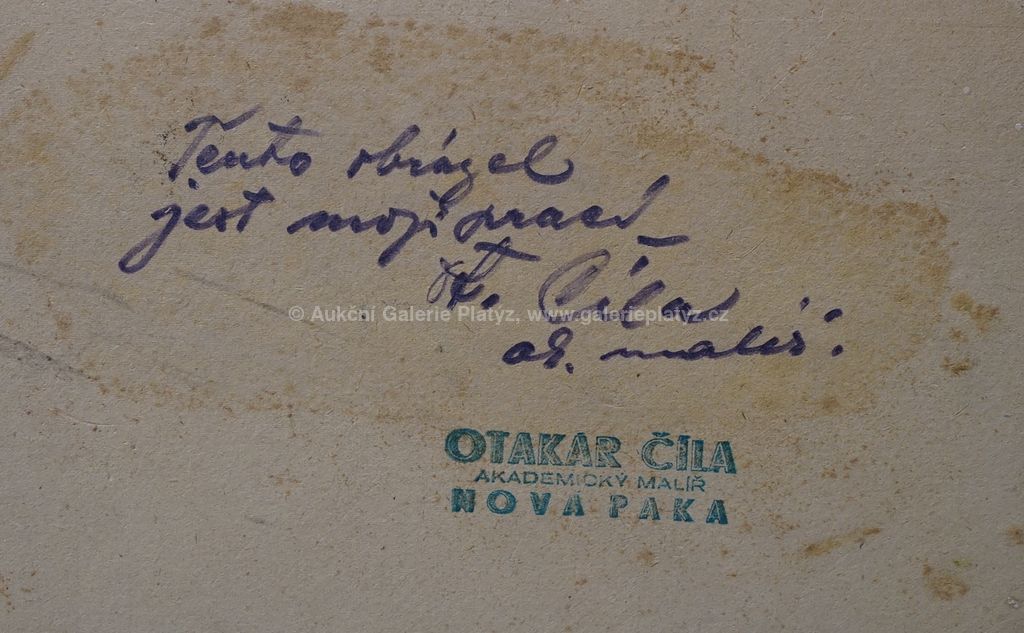 Tento obrázek
jest mojí prací
Ot. Číla
ak. malíř.
© Aukční Galerie Platýz, www.galerieplatyz.cz
OTAKAR ČÍLA
AKADEMICKÝ MALÍŘ
NOVÁ PAKA